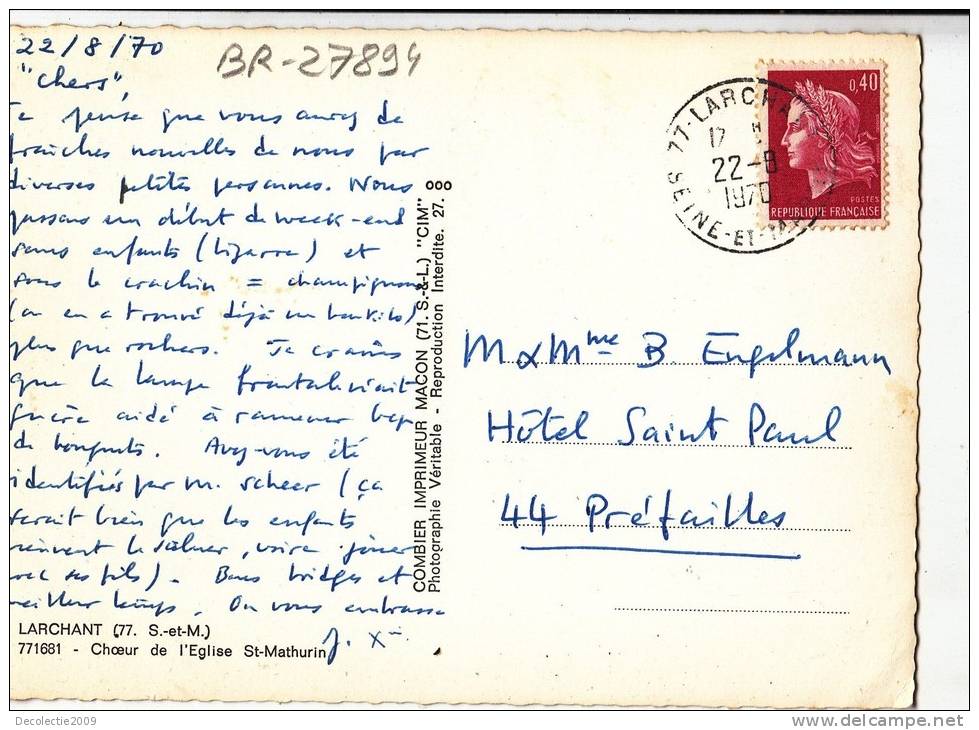 22/8/70
BR-27894
"chers",
pense que vous aurez de
fraîches nouvelles de nous par
diverses petites personnes. Nous
passons un début de week-end
sans enfants (bizarre) et
sous le crachin = champignons
(on en a trouvé déjà un kilo)
plus que rochers. Je crains
que la lampe frontale n'ait
guère aidé à ramener
de bouquets. Avez-vous été
identifiés par M. Scheer (ça
serait bien que les enfants
viennent le saluer, voire jouer
avec ses fils). Bons bridges et
meilleur temps. On vous embrasse
J. X
LARCHANT (77. S.-et-M.)
771681 - Chœur de l'Eglise St-Mathurin
ooo
COMBIER IMPRIMEUR MACON (71. S.-&-L.) "CIM"
Photographie Véritable - Reproduction Interdite. 27.
77-LARCHA
17 H
22-8
1970
SEINE-ET-
0,40
POSTES
REPUBLIQUE FRANÇAISE
M & Mme B. Engelmann
Hôtel Saint Paul
44 Préfailles
Decolectie2009
www.delcampe.net